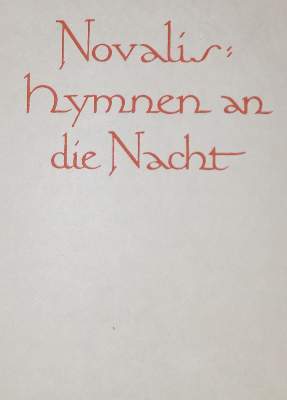 Novalis:
hymnen an
die Nacht